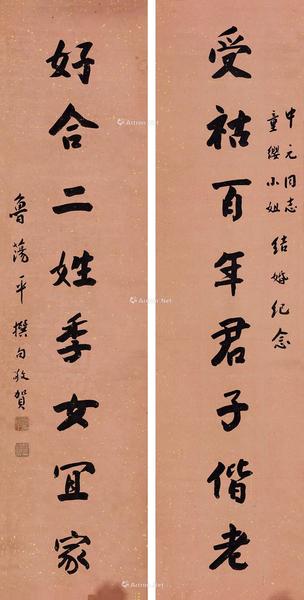 中元同志
童缨小姐 结婚纪念
受祜百年君子偕老
好合二姓季女宜家
鲁荡平撰句敬贺
Artron.Net
Artron.Net
Artron.Net